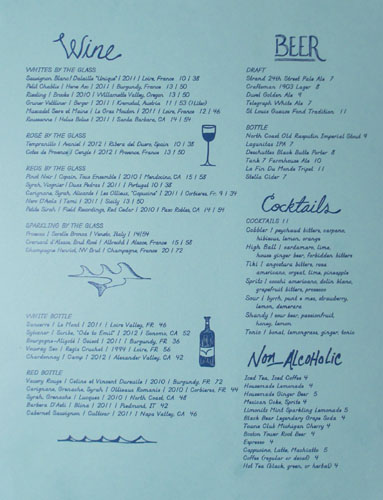 Wine
WHITES BY THE GLASS
Sauvignon Blanc | Delaille "Unique" | 2011 | Loire, France 10 | 38
Petit Chablis | Herve Azo | 2011 | Burgundy, France 13 | 50
Riesling | Brooks | 2010 | Willamette Valley, Oregon 13 | 50
Gruner Veltliner | Berger | 2011 | Kremstal, Austria 11 | 53 (liter)
Muscadet Sevre et Maine | La Gras Mouton | 2011 | Loire, France 12 | 50
Roussanne | Holus Bolus | 2011 | Santa Barbara, CA 14 | 54
ROSÉ BY THE GLASS
Tempranillo | 2012 | Ribera del Duero, Spain 10 | 38
Cotes de Provence | 2012 | Provence, France 13 | 50
REDS BY THE GLASS
Pinot Noir | Copain, Tous Ensemble | 2010 | Mendocino, CA 15 | 58
Syrah, Viognier | Duas Pedras | 2011 | Portugal 10 | 38
Carignane, Syrah, Alicante | Les Ollieux, "Capucine" | 2011 | Corbieres, Fr. 9 | 34
Nero D'Avola | Tami | 2011 | Sicily 13 | 50
Petite Sirah | Field Recordings, Red Cedar | 2010 | Paso Robles, CA 14 | 54
SPARKLING BY THE GLASS
Prosecco | Sorelle Bronca | Veneto, Italy | 14|54
Cremant d'Alsace, Brut Rosé | Albrecht | Alsace, France 15 | 58
Champagne Henriot, NV Brut | Champagne, France 20 | 72
WHITE BOTTLE
Sancerre | Le Mont | 2011 | Loire Valley, FR. 46
"Ode to Emil" | 2012 | Sonoma, CA 52
Bourgogne-Aligoté | Goisot | Burgundy, FR. 36
Vouvray Sec | Pepin Crochet | 1999 | Loire, FR. 56
Chardonnay | Camp | 2012 | Alexander Valley, CA 42
RED BOTTLE
Vosnay Rouge | Celine et Vincent Dureuil | 2010 | Burgundy, FR. 72
Carignane, Grenache, Syrah | Ollieux Romanis | 2010 | Corbieres, FR. 44
Syrah, Grenache | Lacuges | 2010 | North Coast, CA 48
Barbera D'Asti | Blina | 2011 | Piedmont, IT 42
Cabernet Sauvignon | Gallivar | 2011 | Napa Valley, CA 46
BEER
DRAFT
Strand 24th Street Pale Ale 7
Craftsman 1903 Lager 8
Duvel Golden Ale 9
Telegraph White Ale 7
St Louis Gueuze Fond Tradition 11
BOTTLE
North Coast Old Rasputin Imperial Stout 9
Lagunitas IPA 7
Deschutes Black Butte Porter 8
Tank 7 Farmhouse Ale 10
La Fin Du Monde Tripel 11
Stella Cider 7
Cocktails
COCKTAILS 11
Cobbler / peychaud bitters, serpens,
hibiscus, lemon, orange
High Ball / cardamom, lime,
house ginger beer, forbidden bitters
Tiki / angostura bitters, rose
americano, orgeat, lime, pineapple
Spritz / cocchi americano, dolin blanc,
grapefruit bitters, prosecco
Sour / byrrh, punt e mes, strawberry,
lemon, demerara
Shandy / sour beer, passionfruit,
honey, lemon
Tonic / bonal, lemongrass, ginger, tonic
Non-Alcoholic
Iced Tea, Iced Coffee 4
Housemade Lemonade 4
Housemade Ginger Beer 5
Mexican Coke, Sprite 4
Limonitz Mint Sparkling Lemonade 5
Black Bear Legendary Grape Soda 4
Towne Club Michigan Cherry 4
Boston Tower Root Beer 4
Espresso 4
Cappuccino, Latte, Macchiato 5
Coffee (regular or decaf) 4
Hot Tea (black, green, or herbal) 4